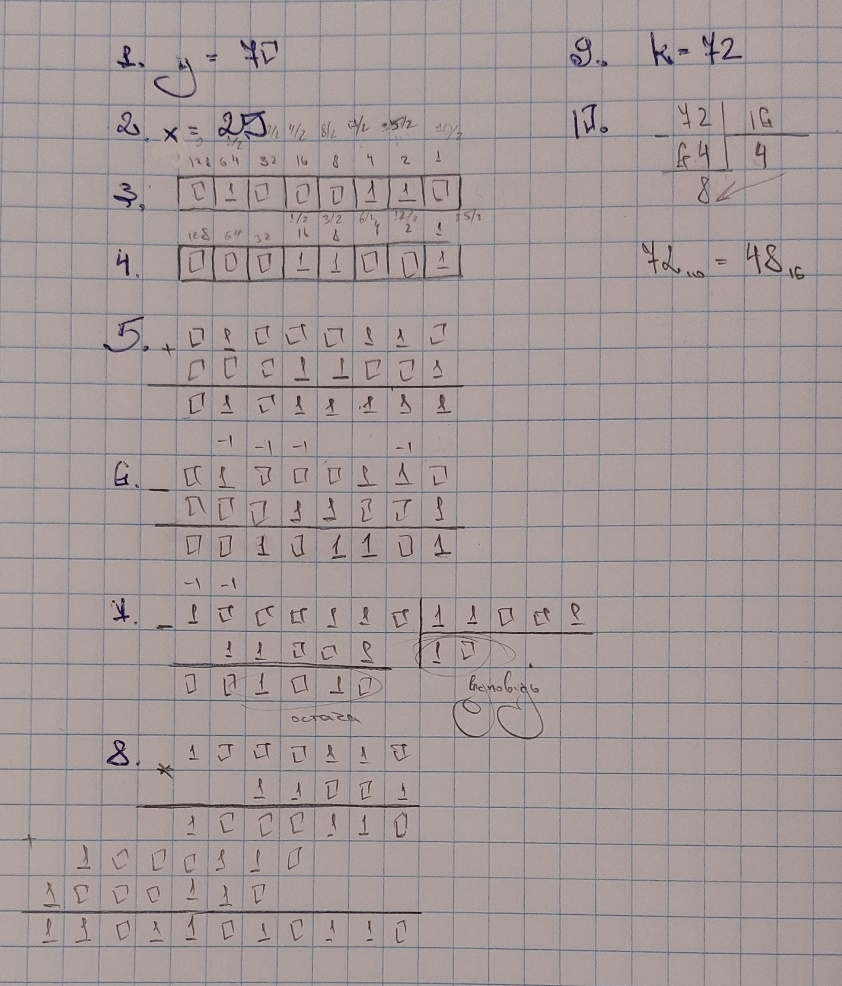 1. y = 70
2. x = 25 1/2 4/2 8/2 17/2 35/2 70/2
128 64 32 16 8 4 2 1
3. 0 1 0 0 0 1 1 0
1/2 3/2 6/2 12/2 25/2
128 64 32 16 8 4 2 1
4. 0 0 0 1 1 0 0 1
5. + 0 1 0 0 0 1 1 0
0 0 0 1 1 0 0 1
0 1 0 1 1 1 1 1
-1 -1 -1 -1
6. - 0 1 0 0 0 1 1 0
0 0 0 1 1 0 0 1
0 0 1 0 1 1 0 1
-1 -1
7. - 1 0 0 0 1 1 0 1 1 0 0 1
1 1 0 0 1 1 0
0 0 1 0 1 0 відповідь
остача
8. * 1 0 0 0 1 1 0
1 1 0 0 1
1 0 0 0 1 1 0
+
1 0 0 0 1 1 0
1 0 0 0 1 1 0
1 1 0 1 1 0 1 0 1 1 0
9. k = 72
10. - 72 16
64 4
8
72₁₀ = 48₁₆